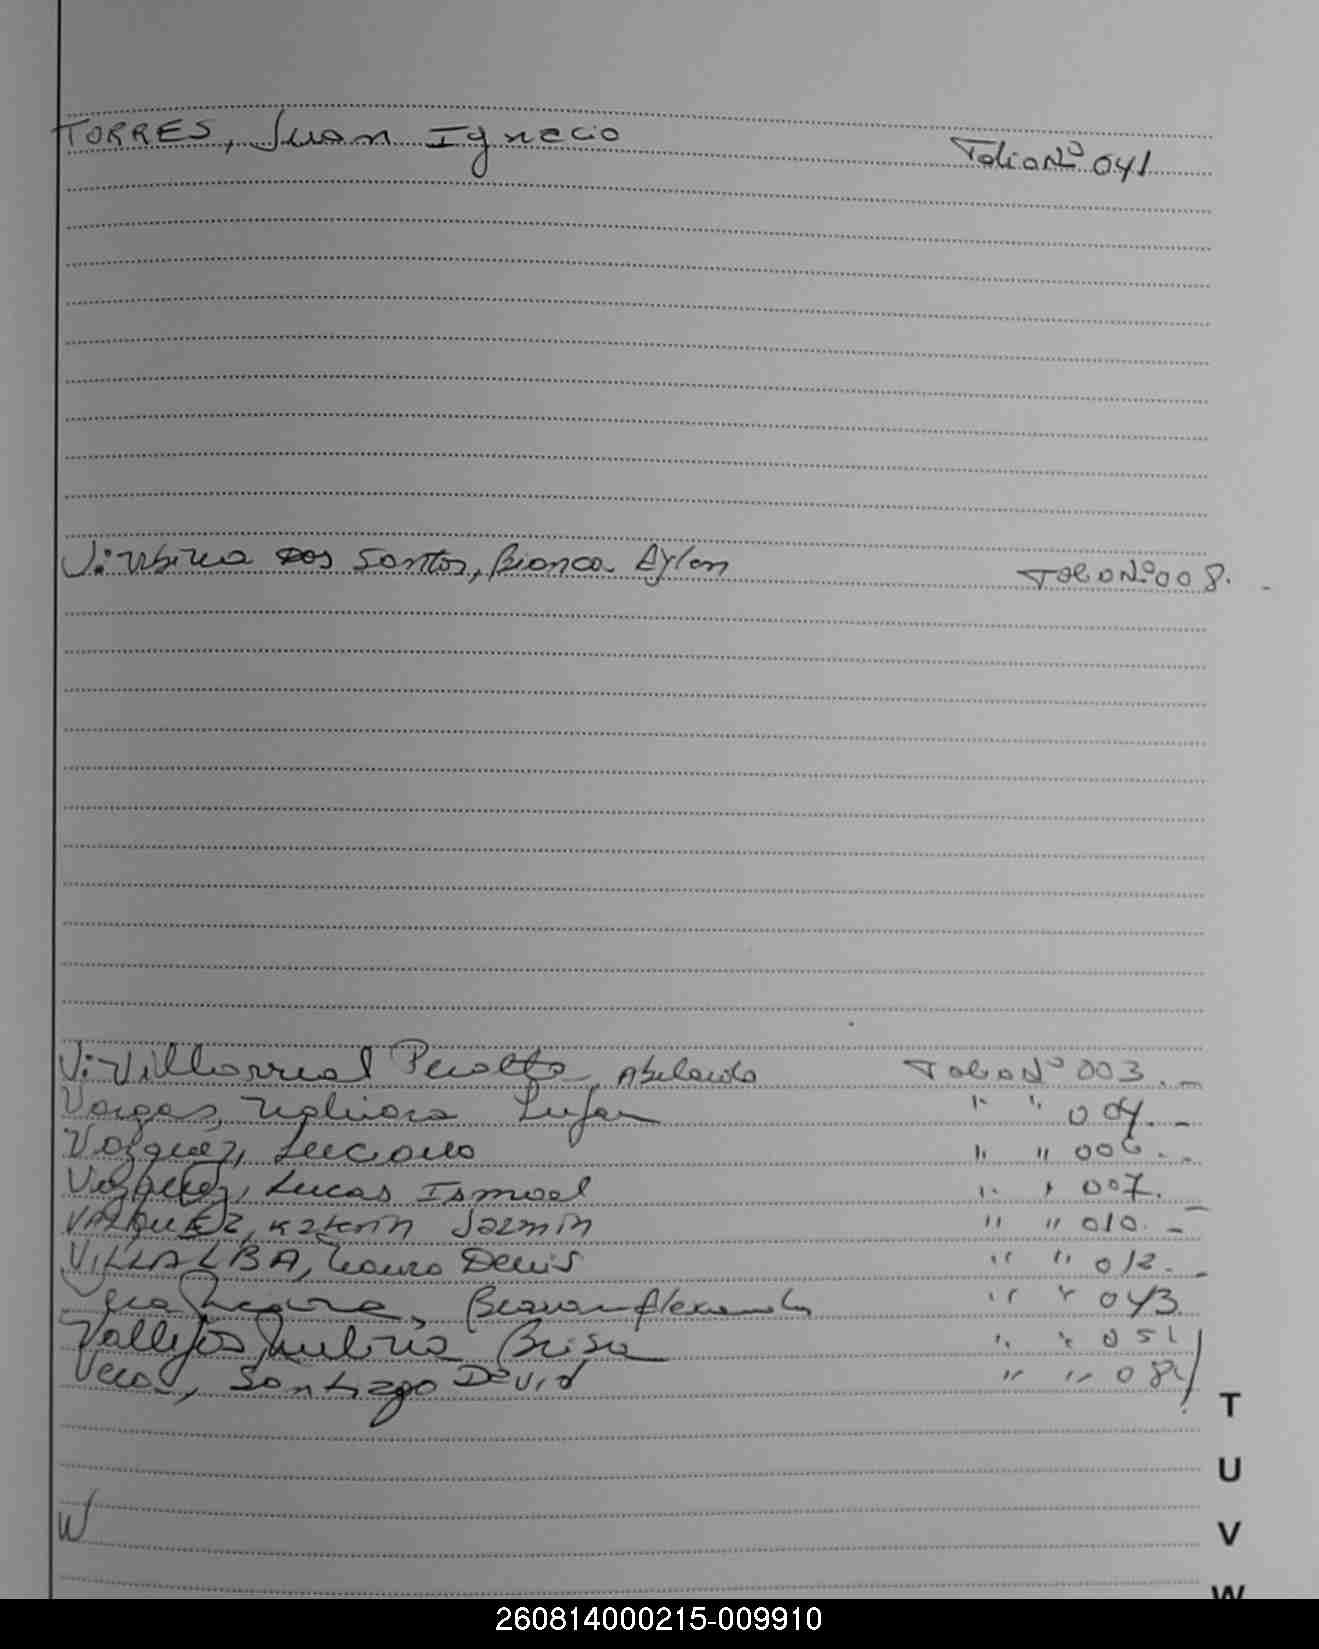 TORRES, Juan Ignacio Folio Nº 041
U: Urbina Dos Santos, Bianca Aylen Folio Nº 008.
V: Villarreal Peralta, Abelardo Folio Nº 003.
Vargas, Lujan " " 004.
Vazquez, Luciano " " 006.
Vazquez, Lucas Ismael " " 007.
VAZQUEZ, Katerin Jazmin " " 010.
VILLALBA, Denis " " 012.
Vera " " 043
Vallejos, Brisa " " 051
Vera, Santiago David " " 08
W
T
U
V
W
260814000215-009910